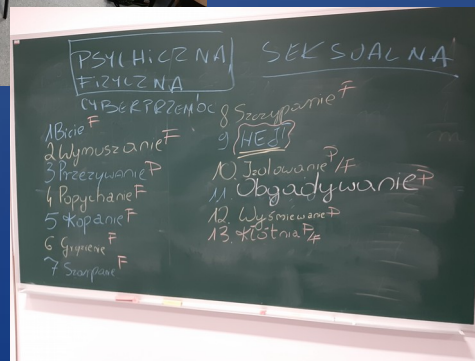 PSYCHICZNA
FIZYCZNA
CYBERPRZEMOC
SEKSUALNA
1 Bicie F
2 Wymuszanie F
3 Przezywanie P
4 Popychanie F
5 Kopanie F
6 F
7 Szarpanie F
8 Szczypanie F
9 HEJT
10. Izolowanie P/F
11 Obgadywanie P
12. Wyśmiewanie P
13. Kłótnia P/F